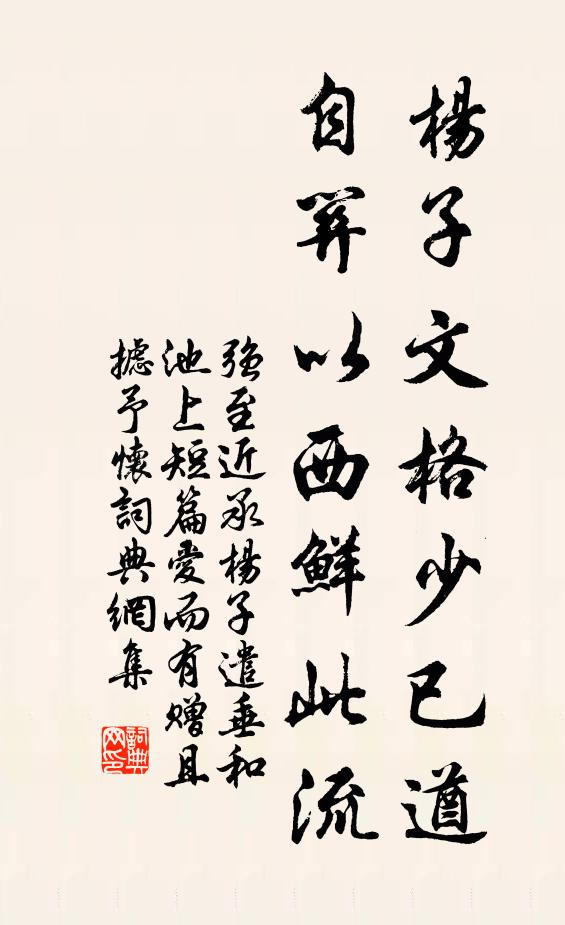 楊子文格少已遒
自笄以西鮮此流
强至近承楊子遣垂和
池上短篇愛而有贈且
攄予懷詞典網集
詞典網印